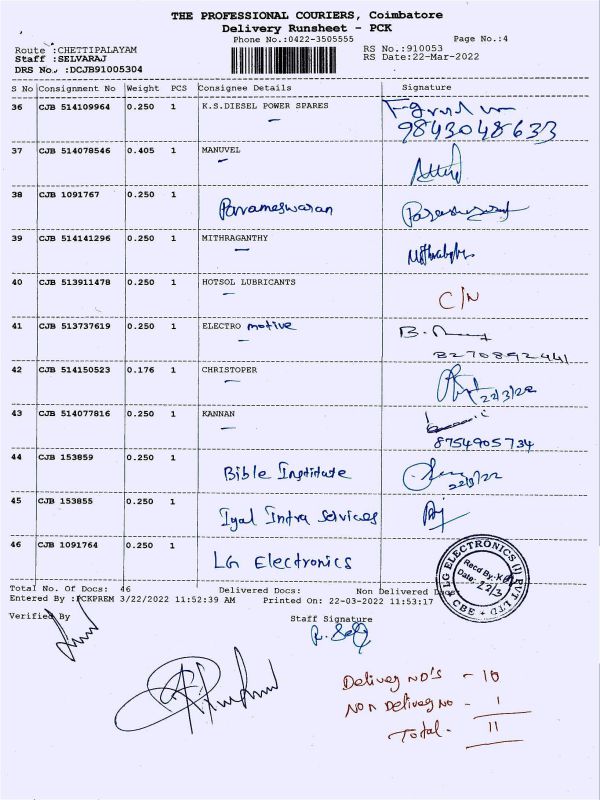 THE PROFESSIONAL COURIERS, Coimbatore
Delivery Runsheet - PCK
Phone No.:0422-3505555 Page No.:4
Route :CHETTIPALAYAM RS No.:910053
Staff :SELVARAJ RS Date:22-Mar-2022
DRS No.. :DCJB91005304
S No Consignment No Weight PCS Consignee Details Signature
36 CJB 514109964 0.250 1 K.S.DIESEL POWER SPARES
9843048633
37 CJB 514078546 0.405 1 MANUVEL
38 CJB 1091767 0.250 1 Parameswaran
39 CJB 514141296 0.250 1 MITHRAGANTHY
40 CJB 513911478 0.250 1 HOTSOL LUBRICANTS C/N
41 CJB 513737619 0.250 1 ELECTRO motive
8270892441
42 CJB 514150523 0.176 1 CHRISTOPER 22/3/22
43 CJB 514077816 0.250 1 KANNAN
8754905734
44 CJB 153859 0.250 1 Bible Institute 22/3/22
45 CJB 153855 0.250 1 Iyal Intra Services
46 CJB 1091764 0.250 1 LG Electronics
LG ELECTRONICS (I) PVT LTD
Recd By.
Date: 22/3
CBE
Total No. Of Docs: 46 Delivered Docs: Non Delivered Docs:
Entered By :PCKPREM 3/22/2022 11:52:39 AM Printed On: 22-03-2022 11:53:17
Verified By Staff Signature
Delivey NO'S - 10
NON Delivey NO - 1
Total - 11